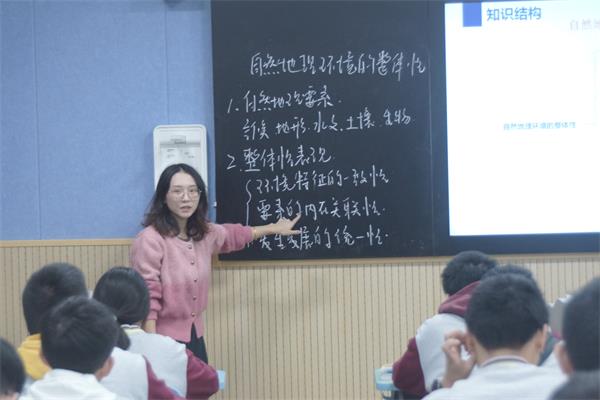 自然地理环境的整体性
1. 自然地理要素.
气候 地形. 水文. 土壤. 生物
2. 整体性表现
环境特征的一致性
要素的内在关联性.
发生发展的统一性.
知识结构
自然地
自然地理环境的整体性